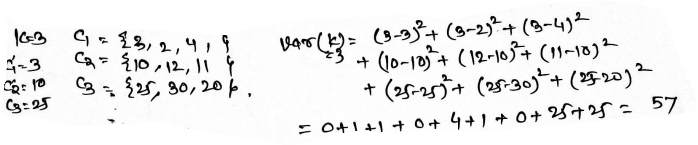 K=3 C₁ = {3, 2, 4, }
C₁=3 C₂ = {10, 12, 11 }
C₂=10 C₃ = {25, 30, 20 }.
C₃=25
Var(K)= (3-3)² + (3-2)² + (3-4)²
=3 + (10-10)² + (12-10)² + (11-10)²
+ (25-25)² + (25-30)² + (25-20)²
= 0+1+1 + 0+ 4+1 + 0+ 25+25 = 57